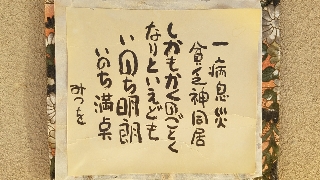 一病息災
貧乏神同居
しかもかくのごとく
なりといえども
いのち明朗
いのち満点
みつを